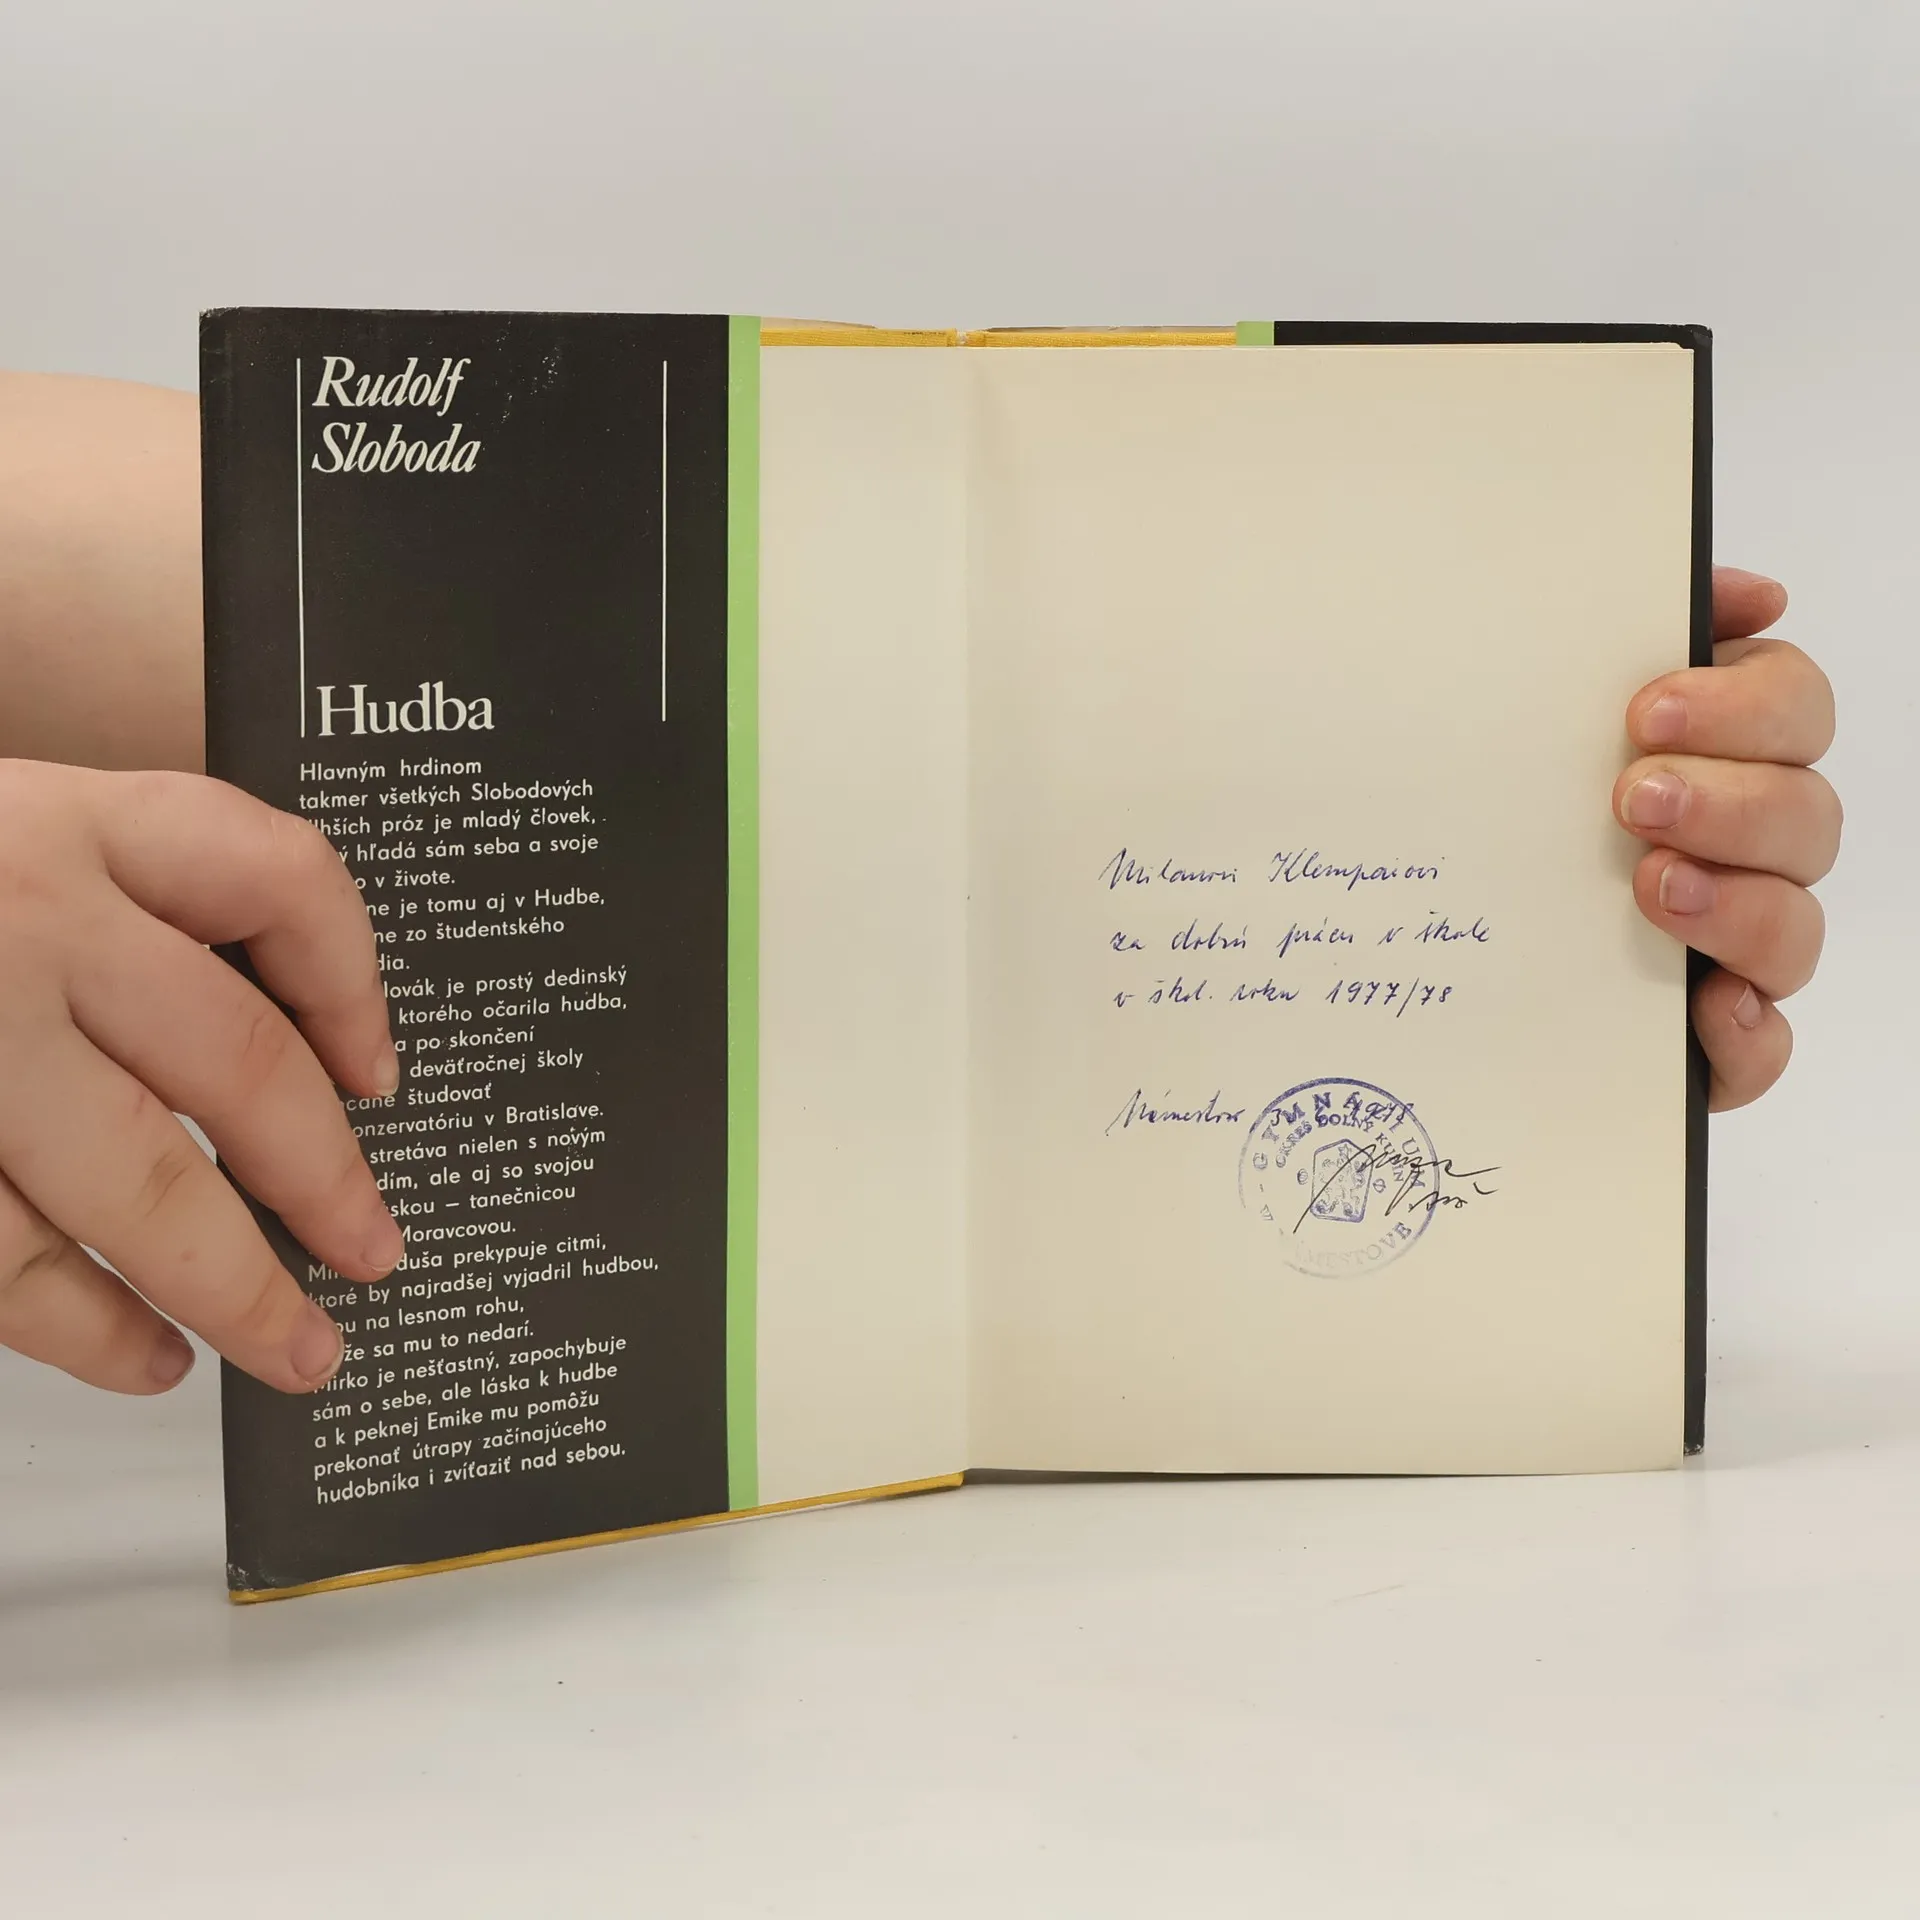 Rudolf
Sloboda
Hudba
Hlavným hrdinom
takmer všetkých Slobodových
lhších próz je mladý človek,
ý hľadá sám seba a svoje
o v živote.
ne je tomu aj v Hudbe,
ne zo študentského
dia.
lovák je prostý dedinský
ktorého očarila hudba,
a po skončení
deväťročnej školy
študovať
onzervatóriu v Bratislave.
stretáva nielen s novým
dím, ale aj so svojou
skou – tanečnicou
Moravcovou.
duša prekypuje citmi,
ktoré by najradšej vyjadril hudbou,
ou na lesnom rohu,
že sa mu to nedarí.
Mirko je nešťastný, zapochybuje
sám o sebe, ale láska k hudbe
a k peknej Emike mu pomôžu
prekonať útrapy začínajúceho
hudobníka i zvíťaziť nad sebou.
Milanovi
za dobrú prácu v škole
v škol. roku 1977/78
GYMNÁZIUM
OKRES DOLNÝ KUBÍN